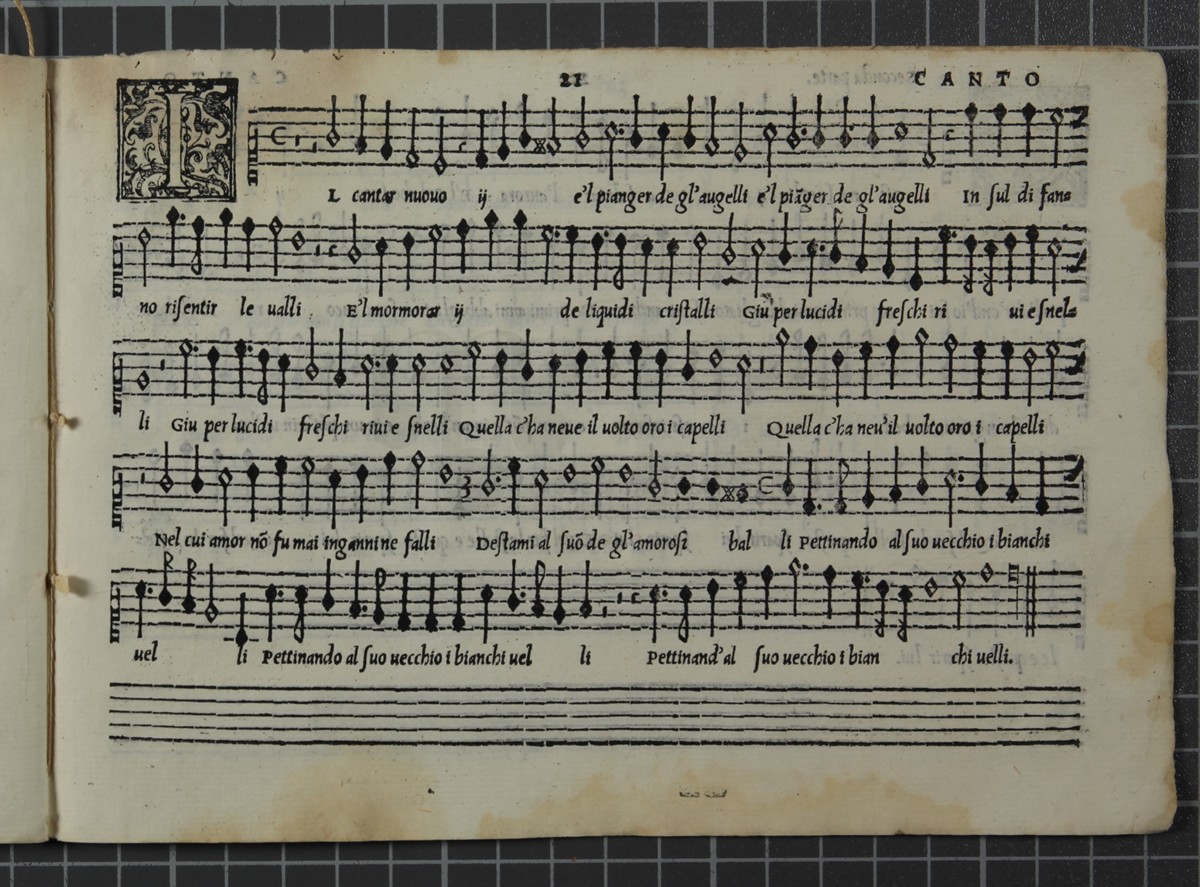 21 CANTO
IL cantar nuouo ij e'l pianger de gl'augelli e'l piãger de gl'augelli In ſul di fan=
no riſentir le ualli E'l mormorar ij de liquidi criſtalli Giu per lucidi freſchi ri ui e ſnel=
li Giu per lucidi freſchi riui e ſnelli Quella c'ha neue il uolto oro i capelli Quella c'ha neu'il uolto oro i capelli
Nel cui amor nõ fu mai inganni ne falli Deſtami al ſuõ de gl'amoroſi bal li Pettinando al ſuo uecchio i bianchi
uel li Pettinando al ſuo uecchio i bianchi uel li Pettinand'al ſuo uecchio i bian chi uelli.